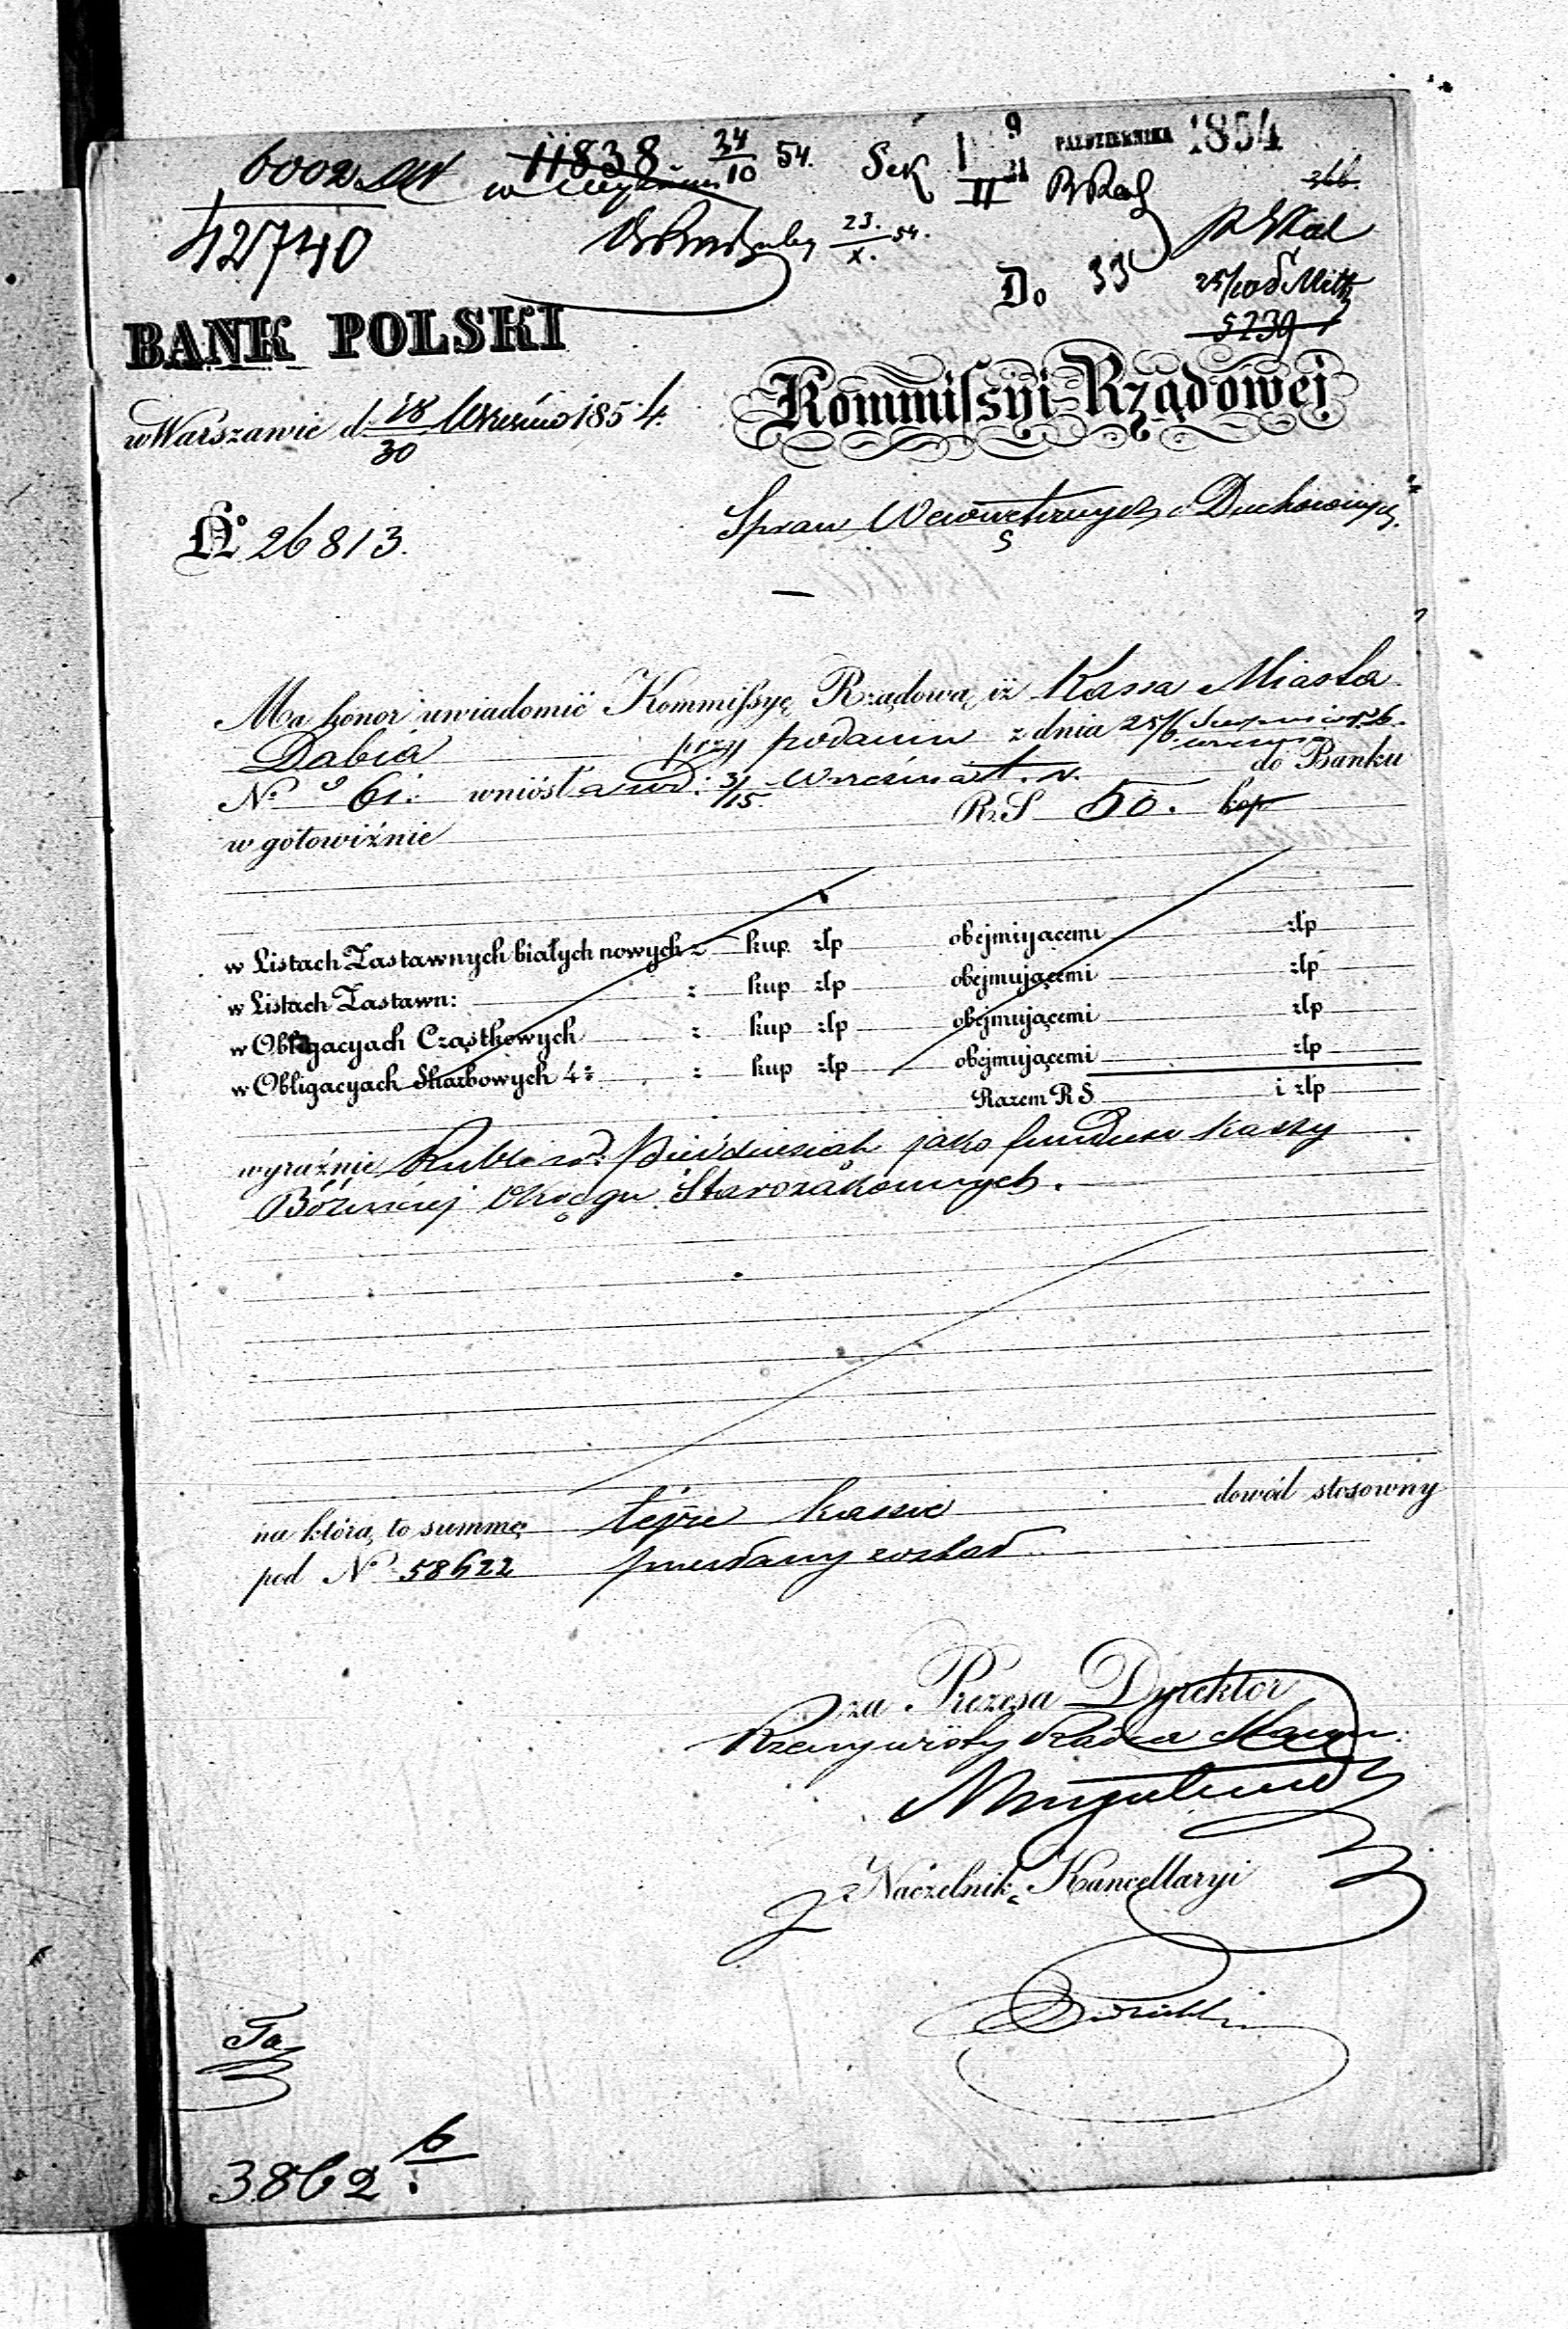 6002
11838. 24/10 54. Sek I/II 9/21 PAŹDZIERNIKA 1854
366.
42740
23./X. 54.
Do
25/10
5239
BANK POLSKI
Kommissyi Rządowej
w Warszawie d. 18/30 Września 1854.
Spraw Wewnętrznych i Duchownych
No 26813.
Ma honor uwiadomić Kommissyę Rządową iż Kassa Miasta
Dąbia przy podaniu z dnia 25/6
No 61. wniosła w d: 3/15 Września t. r. do Banku
w gotowiźnie R.S 50. kop
w Listach Zastawnych białych nowych z kup złp obejmującemi złp
w Listach Zastawn: z kup złp obejmującemi złp
w Obligacyach Cząstkowych z kup złp obejmującemi złp
w Obligacyach Skarbowych 4% z kup złp obejmującemi złp
Razem R S i złp
wyraźnie Rubli sr: Pięćdziesiąt jako fundusz kassy
Bóżniczej Okręgu Starozakonnych.
na którą to summę tejże kassie dowód stosowny
pod No 58622 przesłany został.
za Prezesa Dyrektor
Rzeczywisty Radca Stanu
Naczelnik Kancellaryi
3862